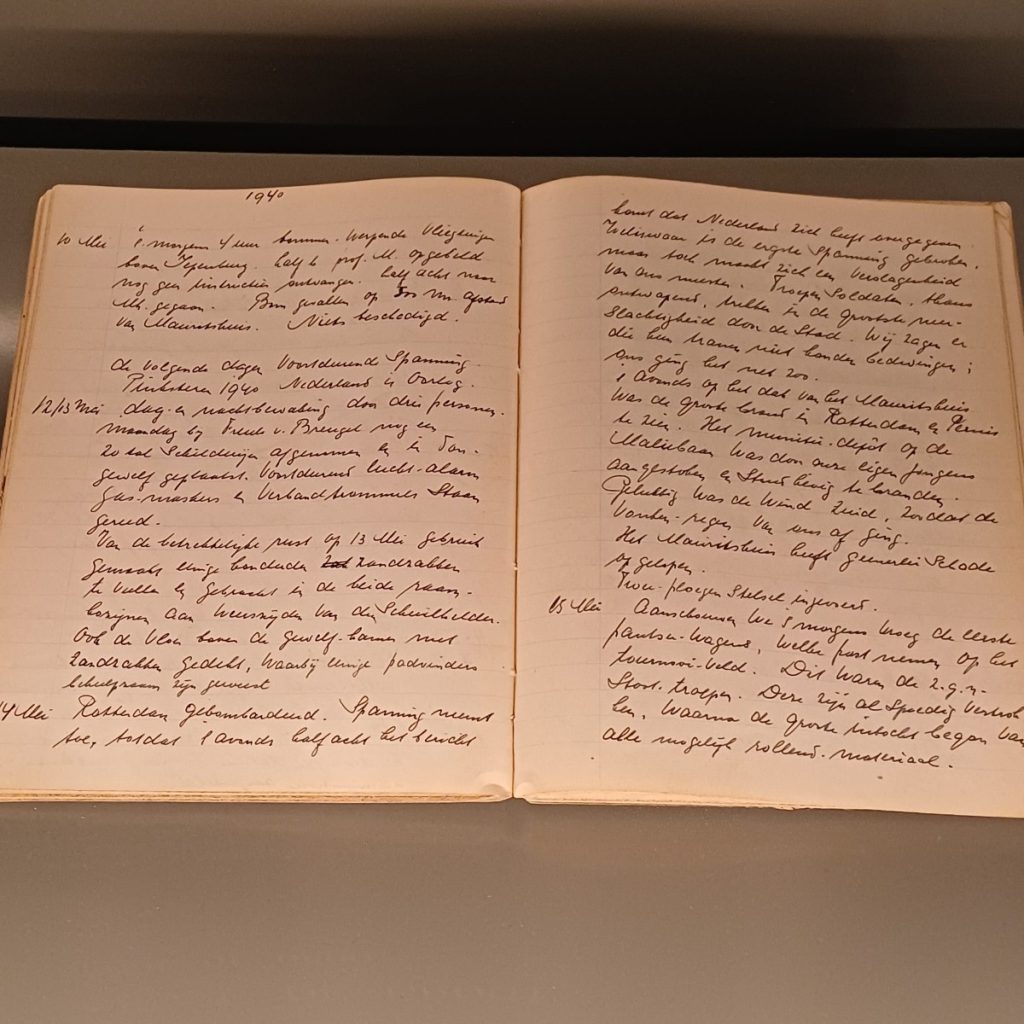 1940
10 Mei 's morgens 4 uur bommen-werpende vliegtuigen
boven Ypenburg. half 6 prof. M. opgebeld
nog geen instructies ontvangen. half acht naar
Mh. gegaan. Bom gevallen op mr. afstand
van Mauritshuis. Niets beschadigd.
de volgende dagen voortdurend Spanning.
Pinksteren 1940 Nederland in Oorlog.
12/13 Mei dag- en nachtbewaking door drie personen.
maandag bij v. Breugel nog een
20 tal Schilderijen afgenomen en in
gewelf geplaatst. Voortdurend lucht-alarm
gas-maskers en Verbandtrommels Staan
gereed.
Van de betrekkelijke rust op 13 Mei gebruik
gemaakt enige honderden zandzakken
te vullen en gebracht in de beide raam-
kozijnen aan weerszijden van den Schuilkelder.
Ook de vloer boven de gewelf-kamer met
zandzakken gedekt, waarbij enige padvinders
behulpzaam zijn geweest
14 Mei Rotterdam gebombardeerd. Spanning neemt
toe, totdat 's avonds half acht het bericht
komt dat Nederland zich heeft overgegeven.
Weliswaar is de ergste Spanning gebroken,
maar toch maakt zich een verslagenheid
van ons meester. Troepen Soldaten, thans
ontwapend, trekken in de grootste neer-
slachtigheid door de Stad. Wij zagen er
die hun tranen niet konden bedwingen;
ons ging het net zoo.
's Avonds op het dak van het Mauritshuis
was de groote brand in Rotterdam en Pernis
te zien. Het munitie-depôt op de
Maliebaan was door onze eigen jongens
aangestoken en Stond hevig te branden.
Gelukkig was de Wind Zuid, zoodat de
vonken-regen van ons af ging.
Het Mauritshuis heeft geenerlei Schade
opgelopen.
Twee-ploegen Stelsel ingevoerd.
15 Mei Aanschouwen we 's morgens vroeg de eerste
pantser-wagens, welke post nemen op het
tournooi-veld. Dit waren de z.g.n.
Stoot-troepen. Deze zijn al Spoedig vertrok
ken, waarna de groote intocht begon van
alle mogelijk rollend-materiaal.